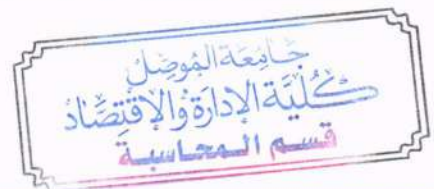 جَامِعَة المُوصِل
كُلِّيَّة الإدَارَة وُالإقْتِصَاد
قسم المحاسبة